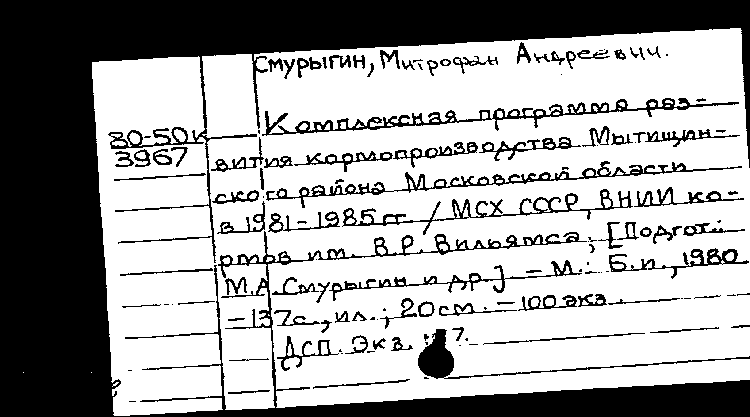 Смурыгин, Митрофан Андреевич.
Комплексная программа раз-
80-50к
3967
вития кормопроизводства Мытищин-
ского района Московской области
в 1981-1985 гг. / МСХ СССР, ВНИИ ко-
рмов им. В.Р. Вильямса; [Подгот.:
М.А. Смурыгин и др.] - М.: Б.и., 1980
- 137с., ил.; 20см. - 100 экз.
ДСП. Экз. 7.